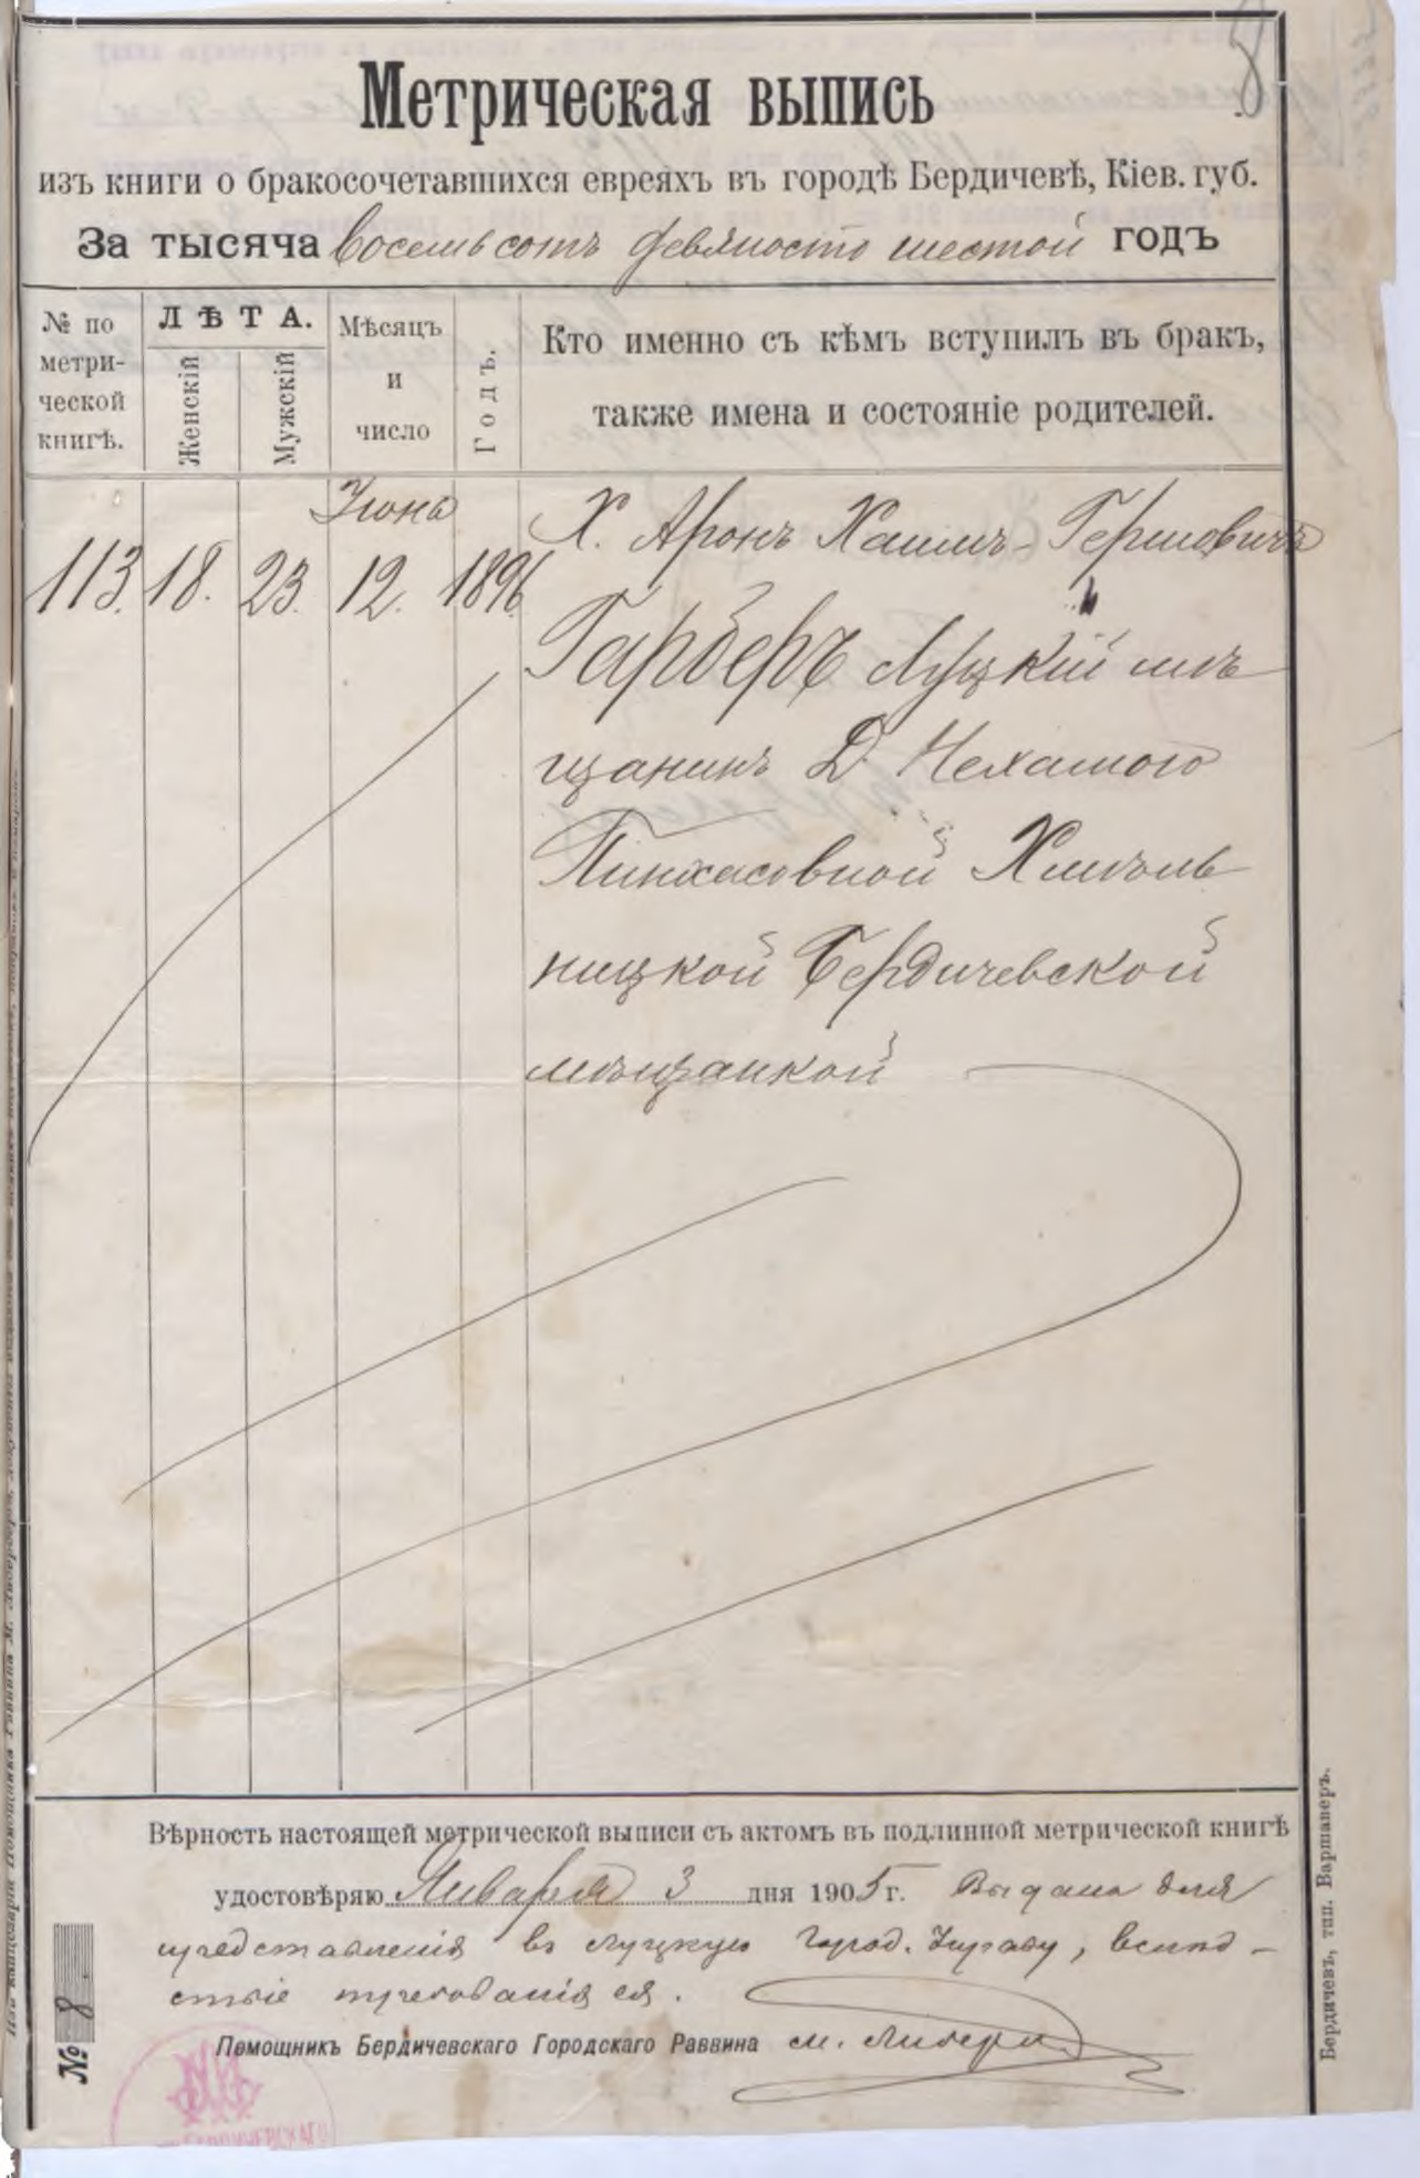 8
Метрическая выпись
изъ книги о бракосочетавшихся евреяхъ въ городѣ Бердичевѣ, Кіев. губ.
За тысяча восемьсотъ девяносто шестой годъ
№ по метрической книгѣ.
ЛѢТА.
Женскій
Мужскій
Мѣсяцъ и число
Годъ.
Кто именно съ кѣмъ вступилъ въ бракъ,
также имена и состояніе родителей.
Іюня
113. 18. 23. 12. 1896
Х. Аронъ Хаимъ-Гершовичъ
Гарберъ Луцкій мѣ
щанинъ Д. Нехамою
Пинхасовной Хмѣль
ницкой Бердичевской
мѣщанкой
Вѣрность настоящей метрической выписи съ актомъ въ подлинной метрической книгѣ
удостовѣряю Января 3 дня 1905 г. Выдана для
представленія въ Луцкую Город. Управу, вслѣд-
ствіе требованія ея.
Помощникъ Бердичевскаго Городскаго Раввина М. Либерм
№ 8
Бердичевъ, тип. Варшаверъ.